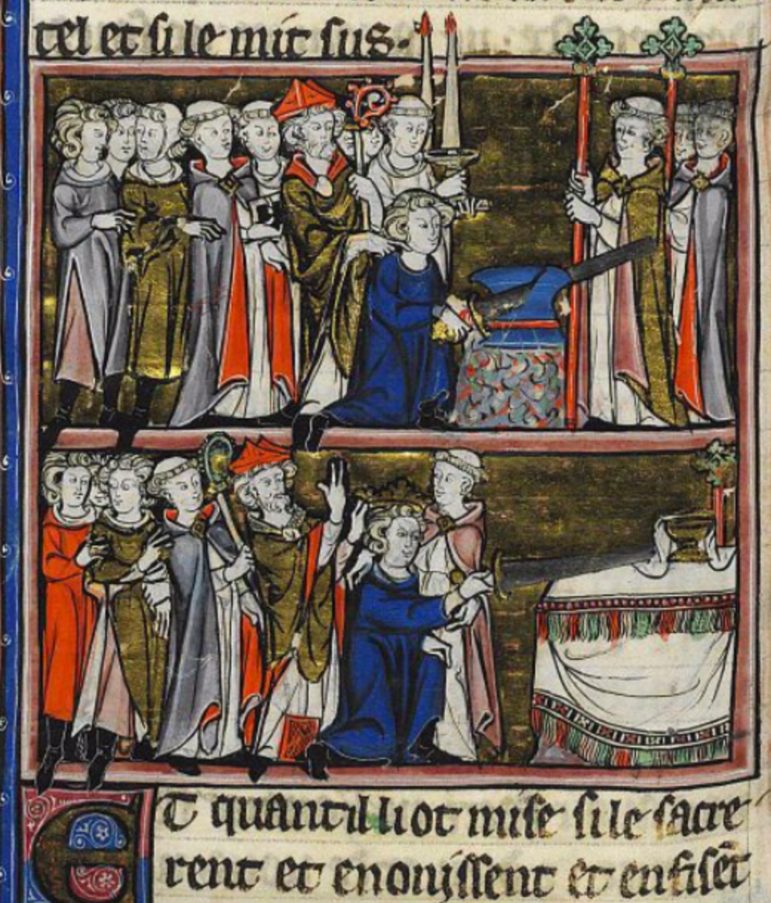 tel et si le mit sus.
Et quant il li ot mise si le sacre
rent et enoinssent et en fisēt